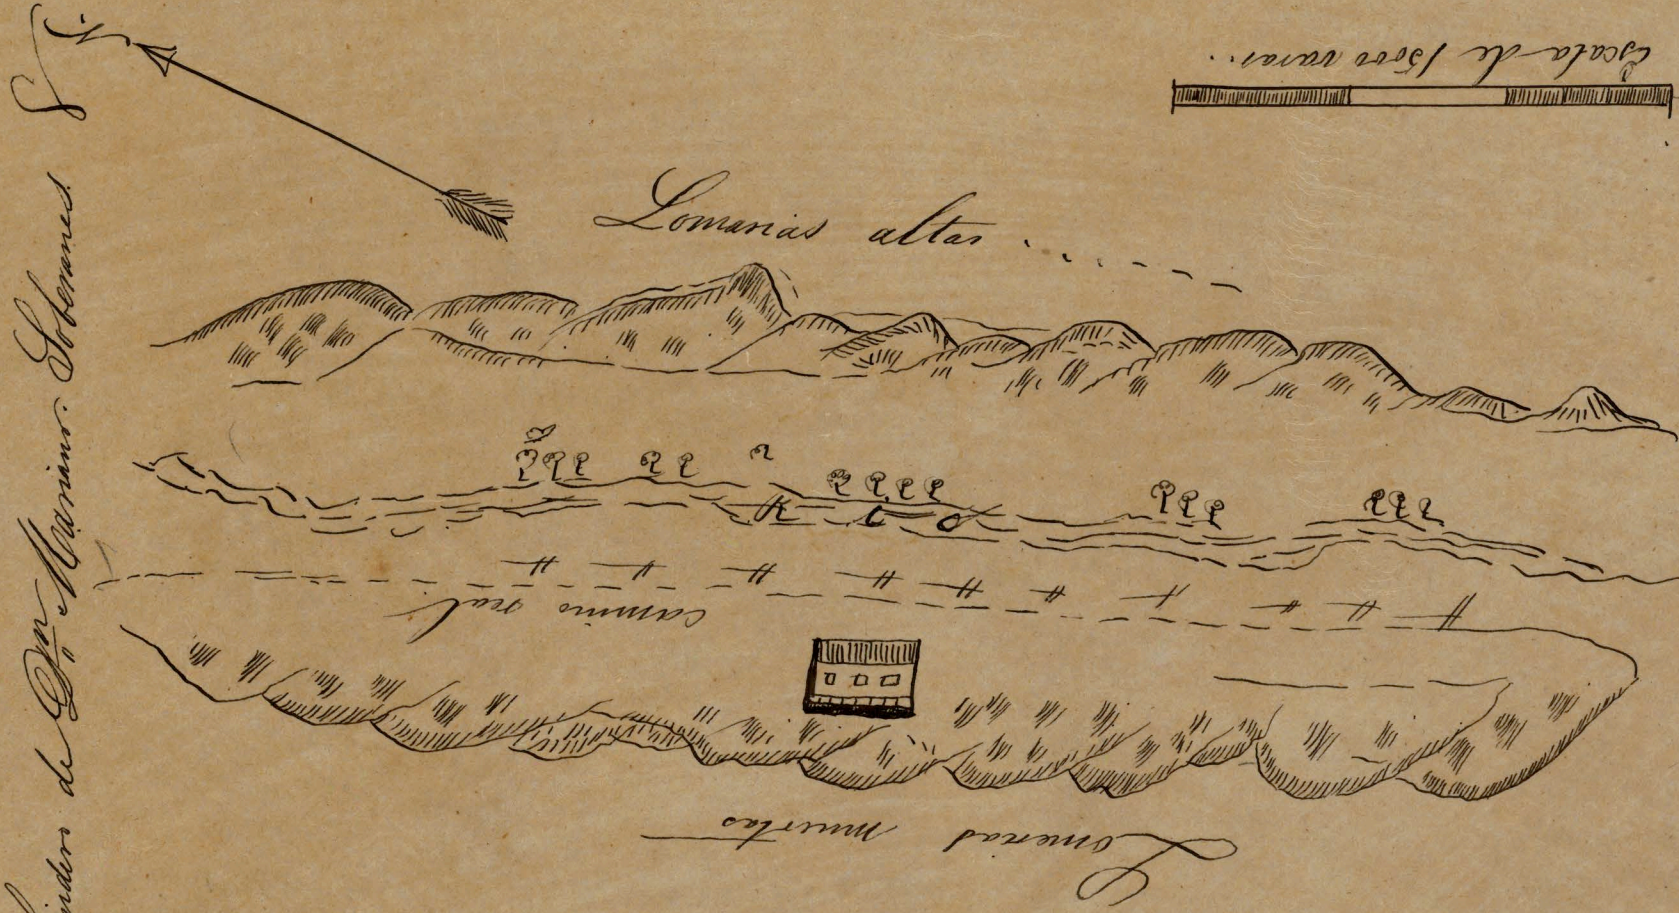 N.
Escala de 15000 varas.
Lomarias altas
camino real
Lomerias muertas
Lindero de Dn Mariano Soberanes